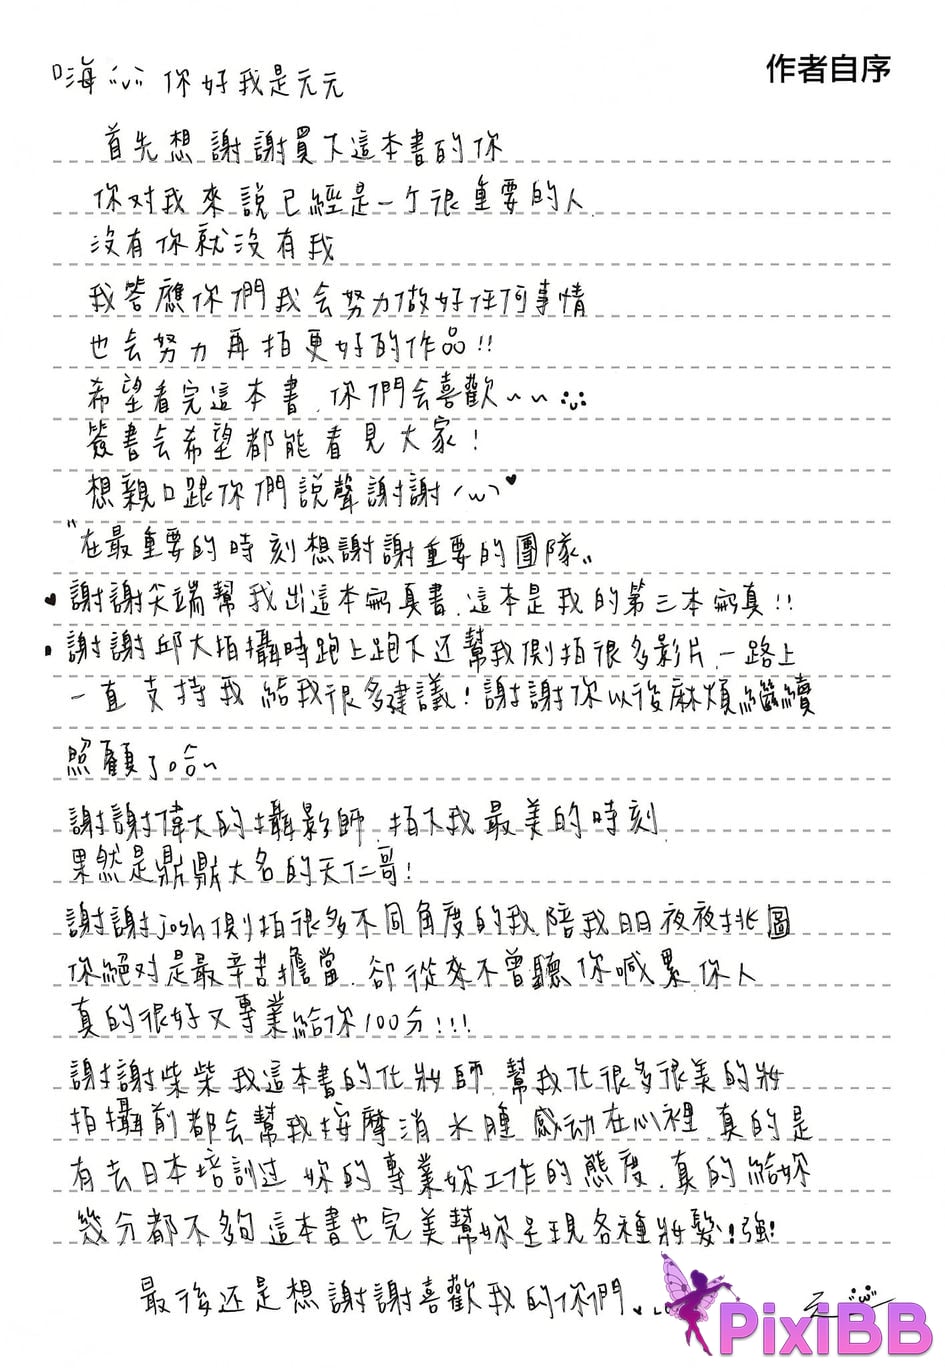 作者自序
嗨 你好我是元元
首先想謝謝買下這本書的你
你对我來說已經是一个很重要的人.
沒有你就沒有我
我答應你們我会努力做好任何事情
也会努力再拍更好的作品!!
希望看完這本書.你們会喜歡~~
簽書会希望都能看見大家!
想親口跟你們說聲謝謝
"在最重要的時刻想謝謝重要的團隊"
♥謝謝尖端幫我出這本寫真書.這本是我的第三本寫真!!
謝謝邱大拍攝時跑上跑下还幫我側拍很多影片.一路上
一直支持我給我很多建議!謝謝你以後麻煩繼續
照顧了哈~
謝謝偉大的攝影師.拍下我最美的時刻.
果然是鼎鼎大名的天仁哥!
謝謝josh側拍很多不同角度的我.陪我日日夜夜挑圖
你絕对是最辛苦擔當.卻從來不曾聽你喊累.你人
真的很好又專業給你100分!!!
謝謝柴柴我這本書的化妝師.幫我化很多很美的妝
拍攝前都会幫我按摩消水腫感动在心裡.真的是
有去日本培訓过妳的專業妳工作的態度.真的給妳
幾分都不夠這本書也完美幫妳呈現各種妝髮!強!
最後还是想謝謝喜歡我的你們.
元
PixiBB